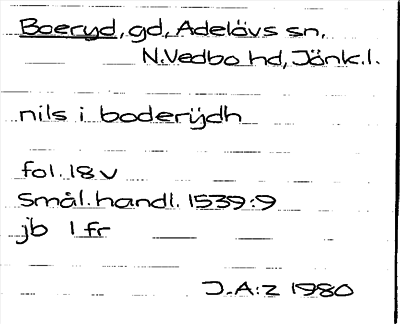 Boeryd, gd, Adelövs sn,
N.Vedbo hd, Jönk.l.
nils i boderÿdh
fol. 18 v
Smål. handl. 1539:9
jb 1 fr
J.A:z 1980